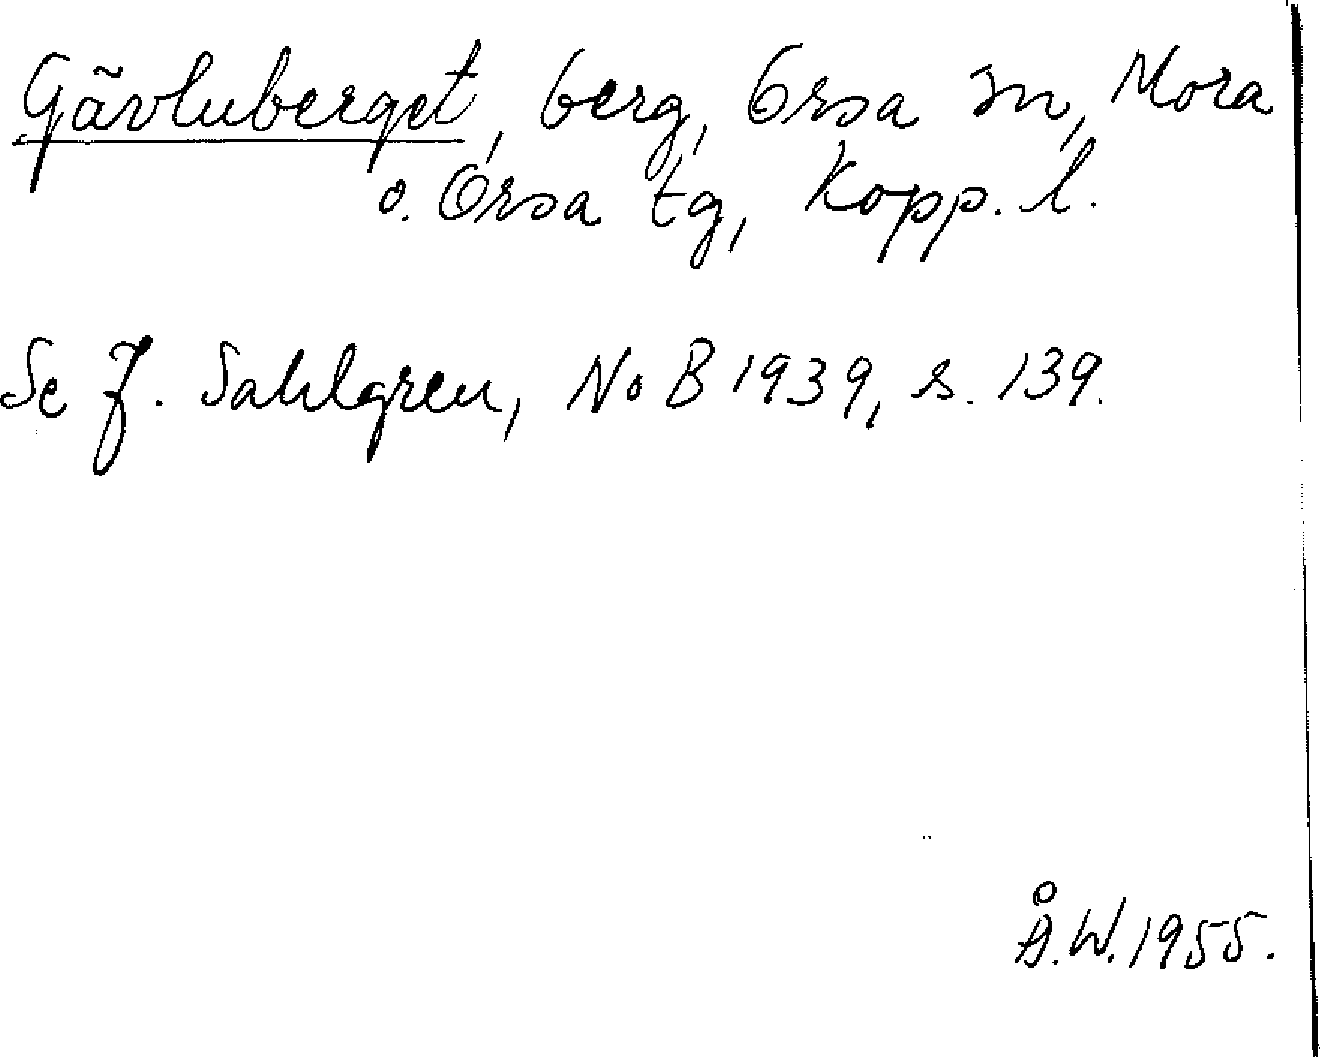 Gävluberget, berg, Orsa sn, Mora
o. Orsa tg, Kopp. l.
Se J. Sahlgren, NoB 1939, s. 139.
Å.W. 1955.